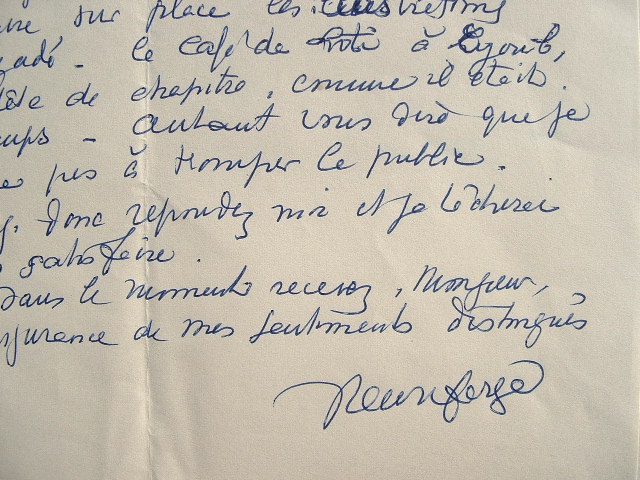 sur place les illustrations
le café de Loti à Eyoub,
tête de chapitre, comme il était.
autant vous dire que je
pas à tromper le public.
donc répondez moi et je tâcherai
satisfaire.
Dans le moment recevez, Monsieur,
assurance de mes sentiments distingués